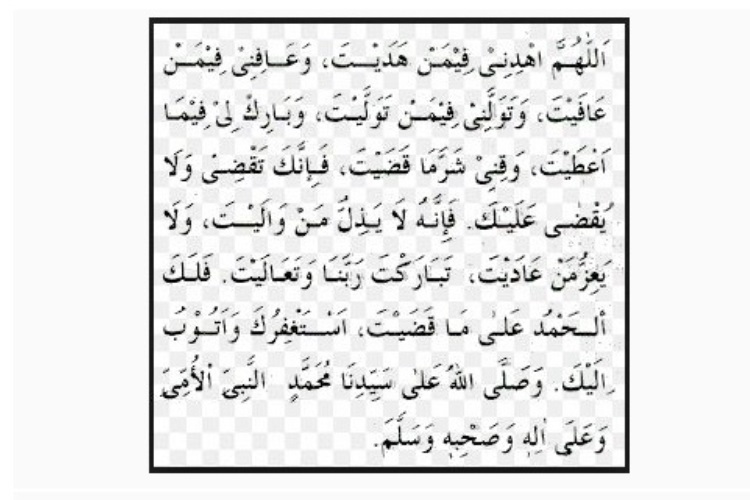 اَللّٰهُمَّ اهْدِنِىْ فِيْمَنْ هَدَيْتَ، وَعَافِنِىْ فِيْمَنْ
عَافَيْتَ، وَتَوَلَّنِىْ فِيْمَنْ تَوَلَّيْتَ، وَبَارِكْ لِىْ فِيْمَا
اَعْطَيْتَ، وَقِنِىْ شَرَّمَا قَضَيْتَ، فَإِنَّكَ تَقْضِىْ وَلَا
يُقْضٰى عَلَيْكَ. فَإِنَّهُ لَا يَذِلُّ مَنْ وَالَيْتَ، وَلَا
يَعِزُّمَنْ عَادَيْتَ، تَبَارَكْتَ رَبَّنَا وَتَعَالَيْتَ. فَلَكَ
اْلحَمْدُ عَلٰى مَا قَضَيْتَ، اَسْتَغْفِرُكَ وَاَتُوْبُ
اِلَيْكَ. وَصَلَّى اللهُ عَلٰى سَيِّدِنَا مُحَمَّدٍ النَّبِىِّ اْلأُمِّىِّ
وَعَلَى اٰلِهٖ وَصَحْبِهٖ وَسَلَّمَ.